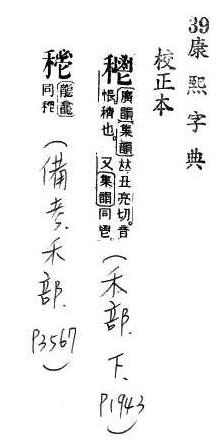 39 康熙字典
校正本
廣韻集韻𠀤丑亮切。音
悵穧也。又集韻同鬯。
(禾部.下.P1943)
龍龕
同
(備考.禾部.P3567)